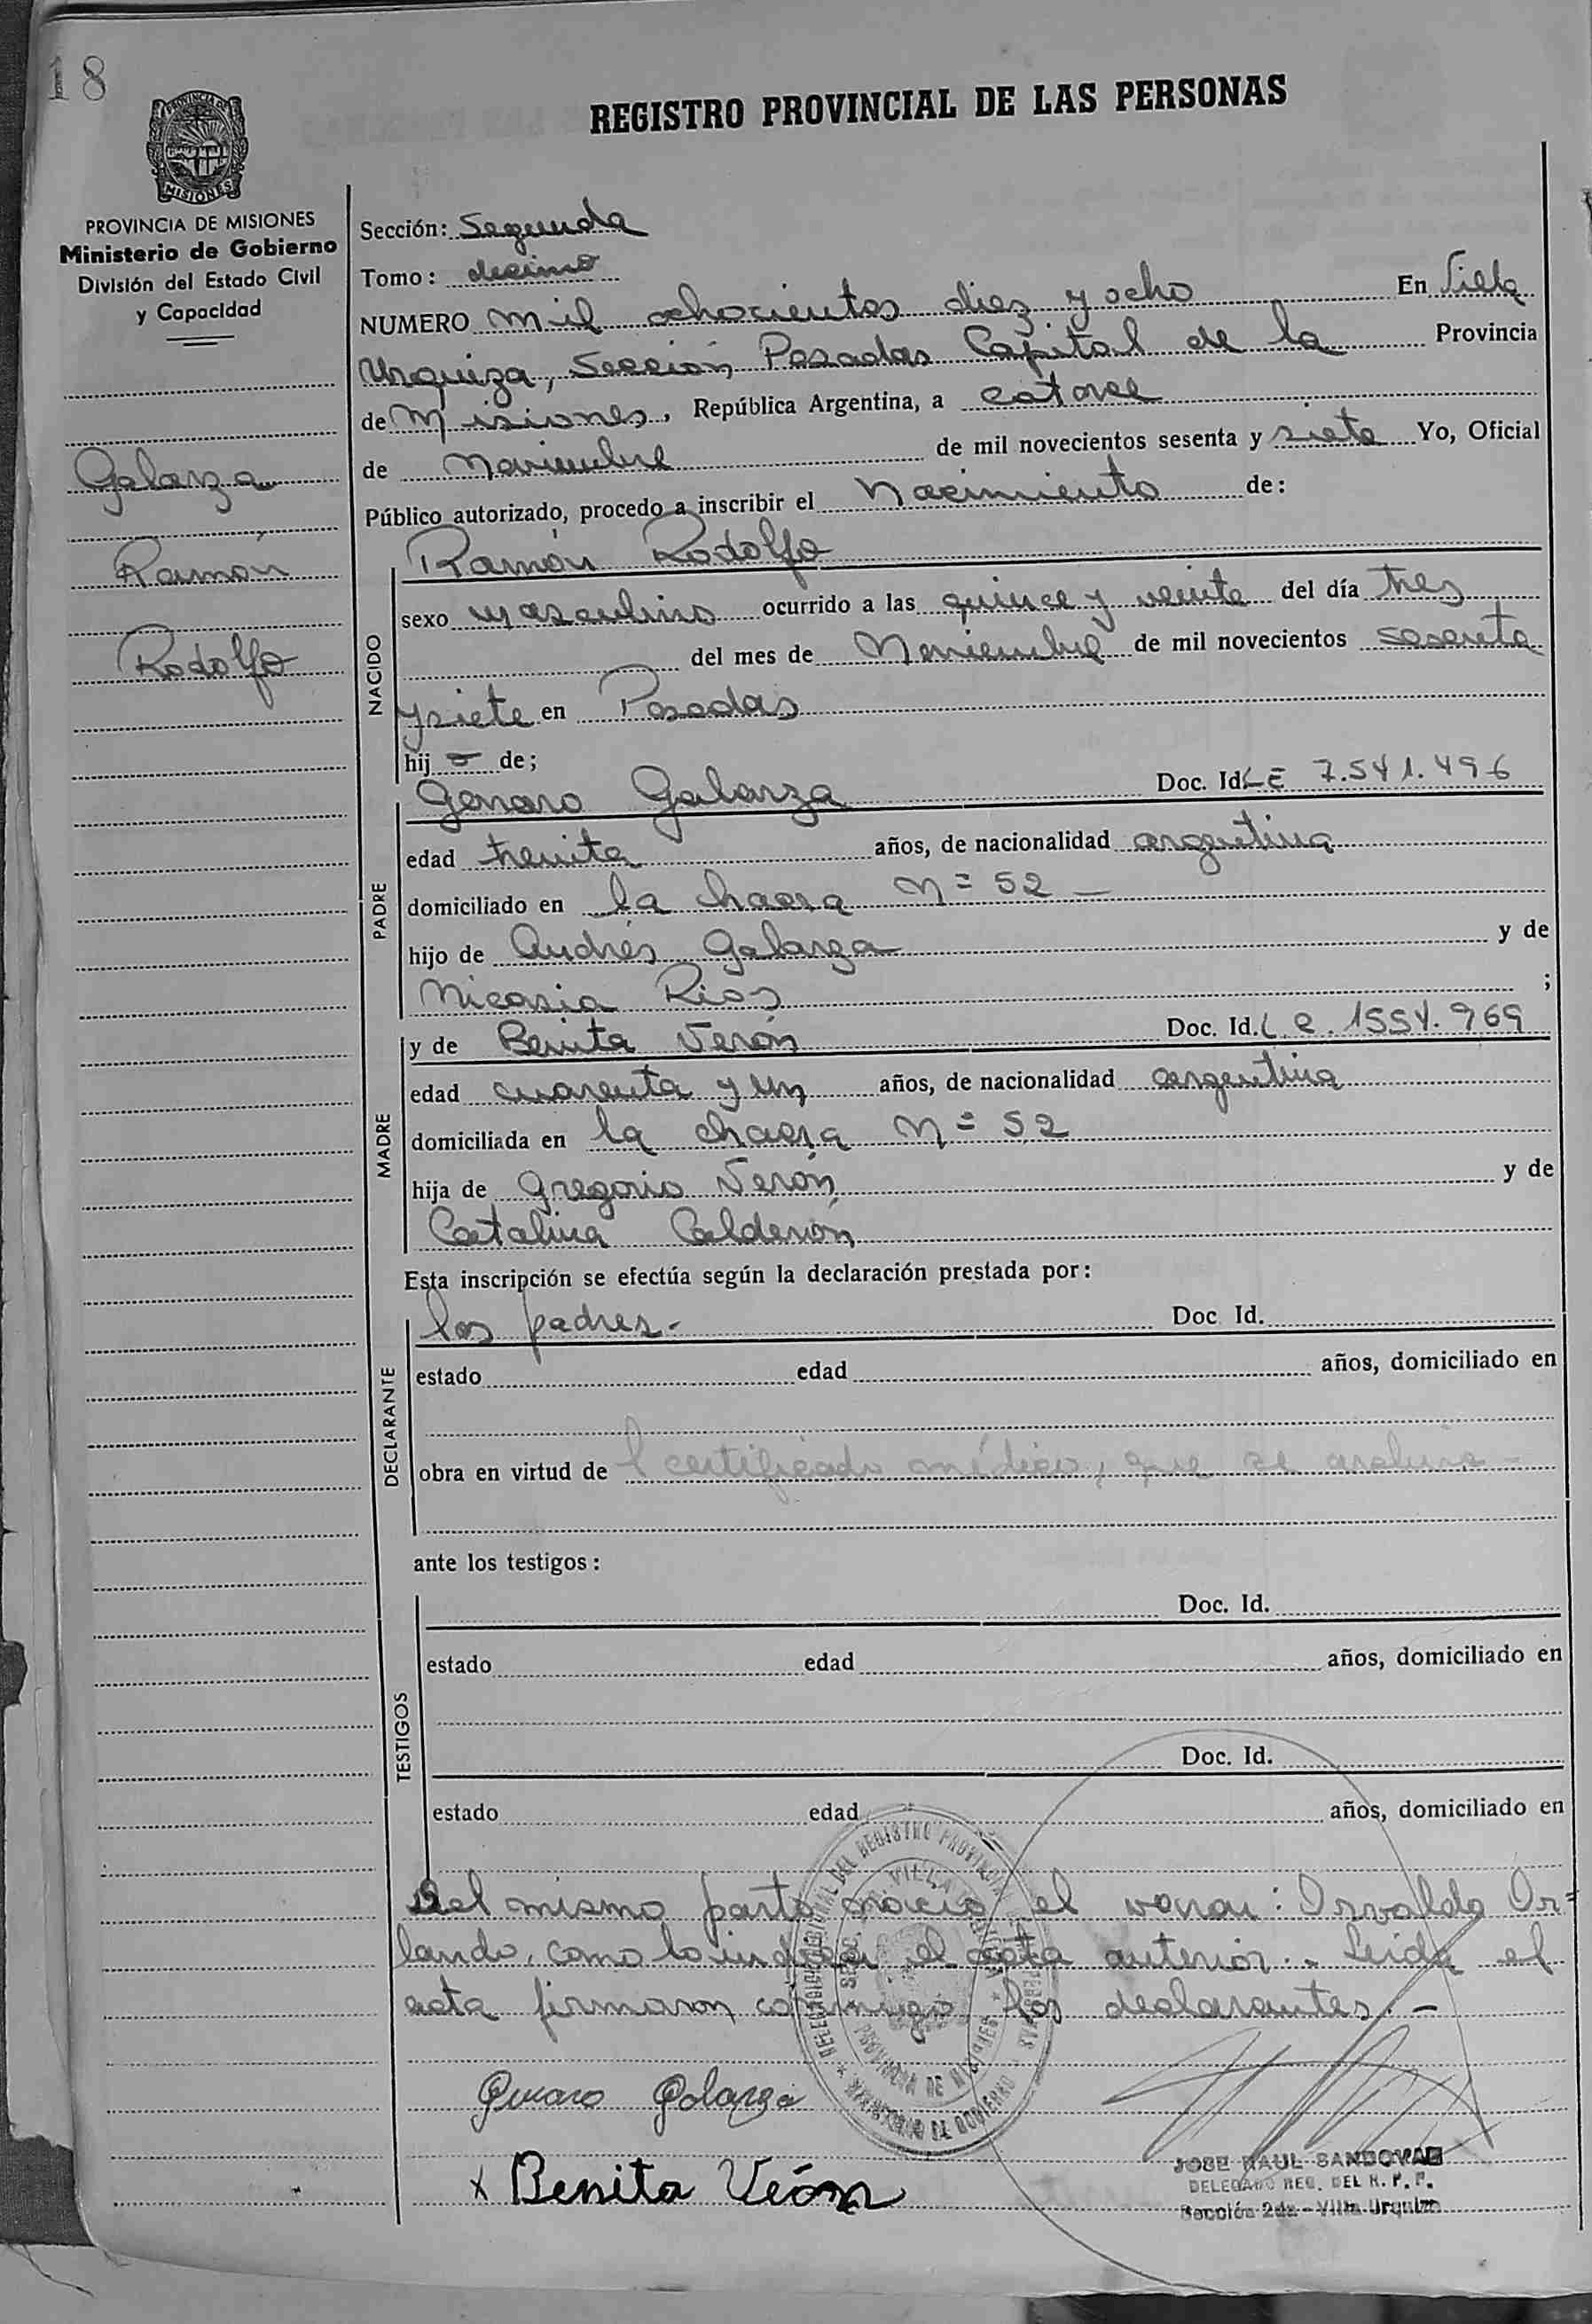 18
REGISTRO PROVINCIAL DE LAS PERSONAS
PROVINCIA DE MISIONES
MISIONES
PROVINCIA DE MISIONES
Ministerio de Gobierno
División del Estado Civil
y Capacidad
Galarza
Ramón
Rodolfo
Sección: Segunda
Tomo: decimo
NUMERO mil ochocientos diez y ocho En Villa
Urquiza, Sección Posadas Capital de la Provincia
de Misiones, República Argentina, a catorce
de Noviembre de mil novecientos sesenta y siete Yo, Oficial
Público autorizado, procedo a inscribir el Nacimiento de:
NACIDO
Ramón Rodolfo
sexo masculino ocurrido a las quince y veinte del día tres
del mes de Noviembre de mil novecientos sesenta
y siete en Posadas
hijo de;
PADRE
Genaro Galarza Doc. Id. LE 7.541.496
edad treinta años, de nacionalidad argentina
domiciliado en la chacra Nº 52 —
hijo de Andrés Galarza y de
Nicasia Rios ;
MADRE
y de Benita Verón Doc. Id. L.C. 1554.969
edad cuarenta y un años, de nacionalidad argentina
domiciliada en la chacra Nº 52
hija de Gregorio Verón y de
Catalina Calderón
Esta inscripción se efectúa según la declaración prestada por:
DECLARANTE
los padres.- Doc. Id.
estado edad años, domiciliado en
obra en virtud de l certificado médico, que se archiva -
ante los testigos:
TESTIGOS
Doc. Id.
estado edad años, domiciliado en
Doc. Id.
estado edad años, domiciliado en
Del mismo parto nació el varon: Osvaldo Or=
lando, como lo indica el acta anterior.- Leida el
acta firmaron conmigo los declarantes.-
DELEGACION REGIONAL DEL REGISTRO PROVINCIAL DE LAS PERSONAS
MINISTERIO DE GOBIERNO
VILLA URQUIZA
PROVINCIA DE MISIONES
Genaro Galarza
x Benita Veón
JOSE RAUL SANDOVAL
DELEGADO REG. DEL R. P. P.
Sección 2da - Villa Urquiza